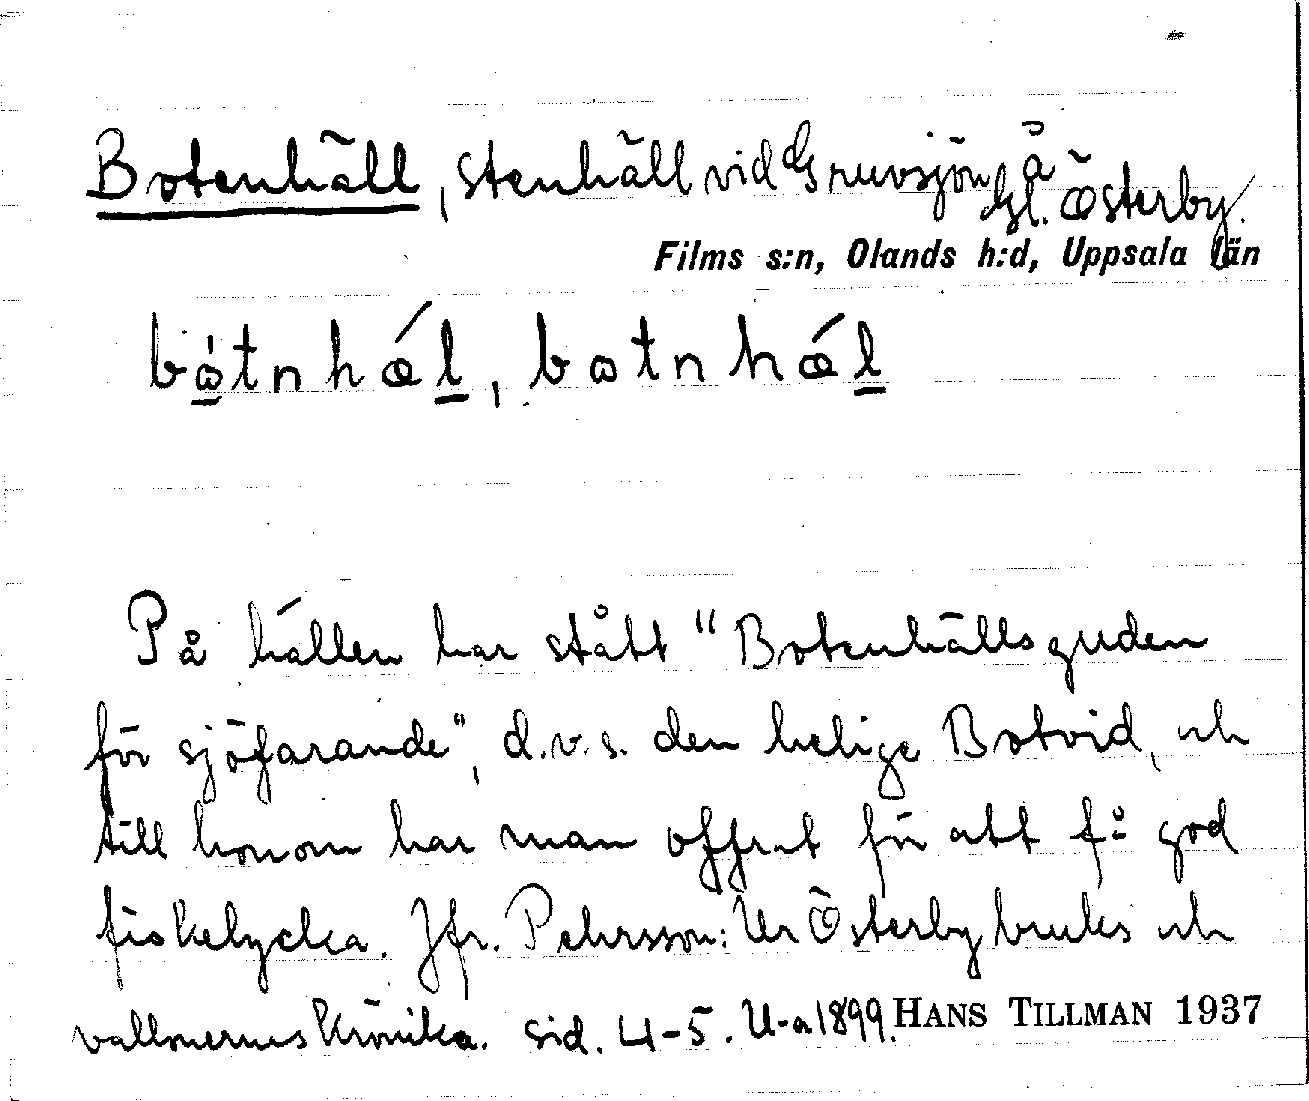 Botenhäll, stenhäll vid Gruvsjön å
Gl. Österby.
Films s:n, Olands h:d, Uppsala län
bo̱tnhǽḻ, botnhǽḻ
På hällen har stått "Botenhällsguden
för sjöfarande", d.v.s. den helige Botvid, och
till honom har man offrat för att få god
fiskelycka. Jfr. Pehrsson: Ur Österby bruks och
vallonernas krönika. sid. 4-5. U-a 1899. HANS TILLMAN 1937